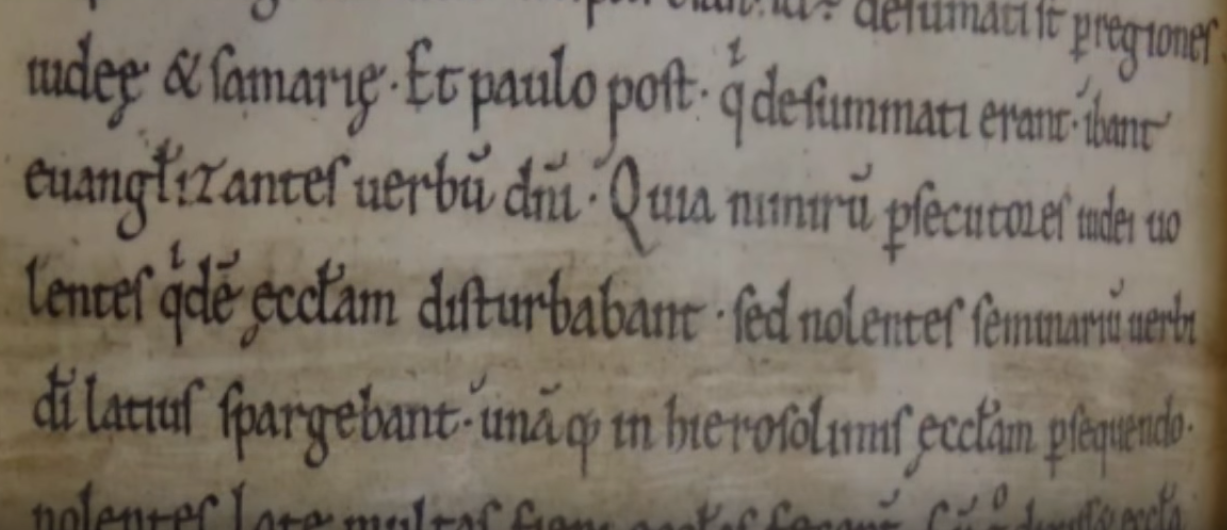 desumati st ꝑregiones
iudeę & samarię. Et paulo post. qͥ desummati erant. ibant
euangł̓izantes uerbū dn̄i. Quia nimirū ꝑsecutores iudei uo
lentes qͥdē ęccłam disturbabant. sed nolentes seminariū uerbi
dī latius spargebant. unāqꝫ in hierosolimis ęccłam ꝑsequendo.
nolentes late multas